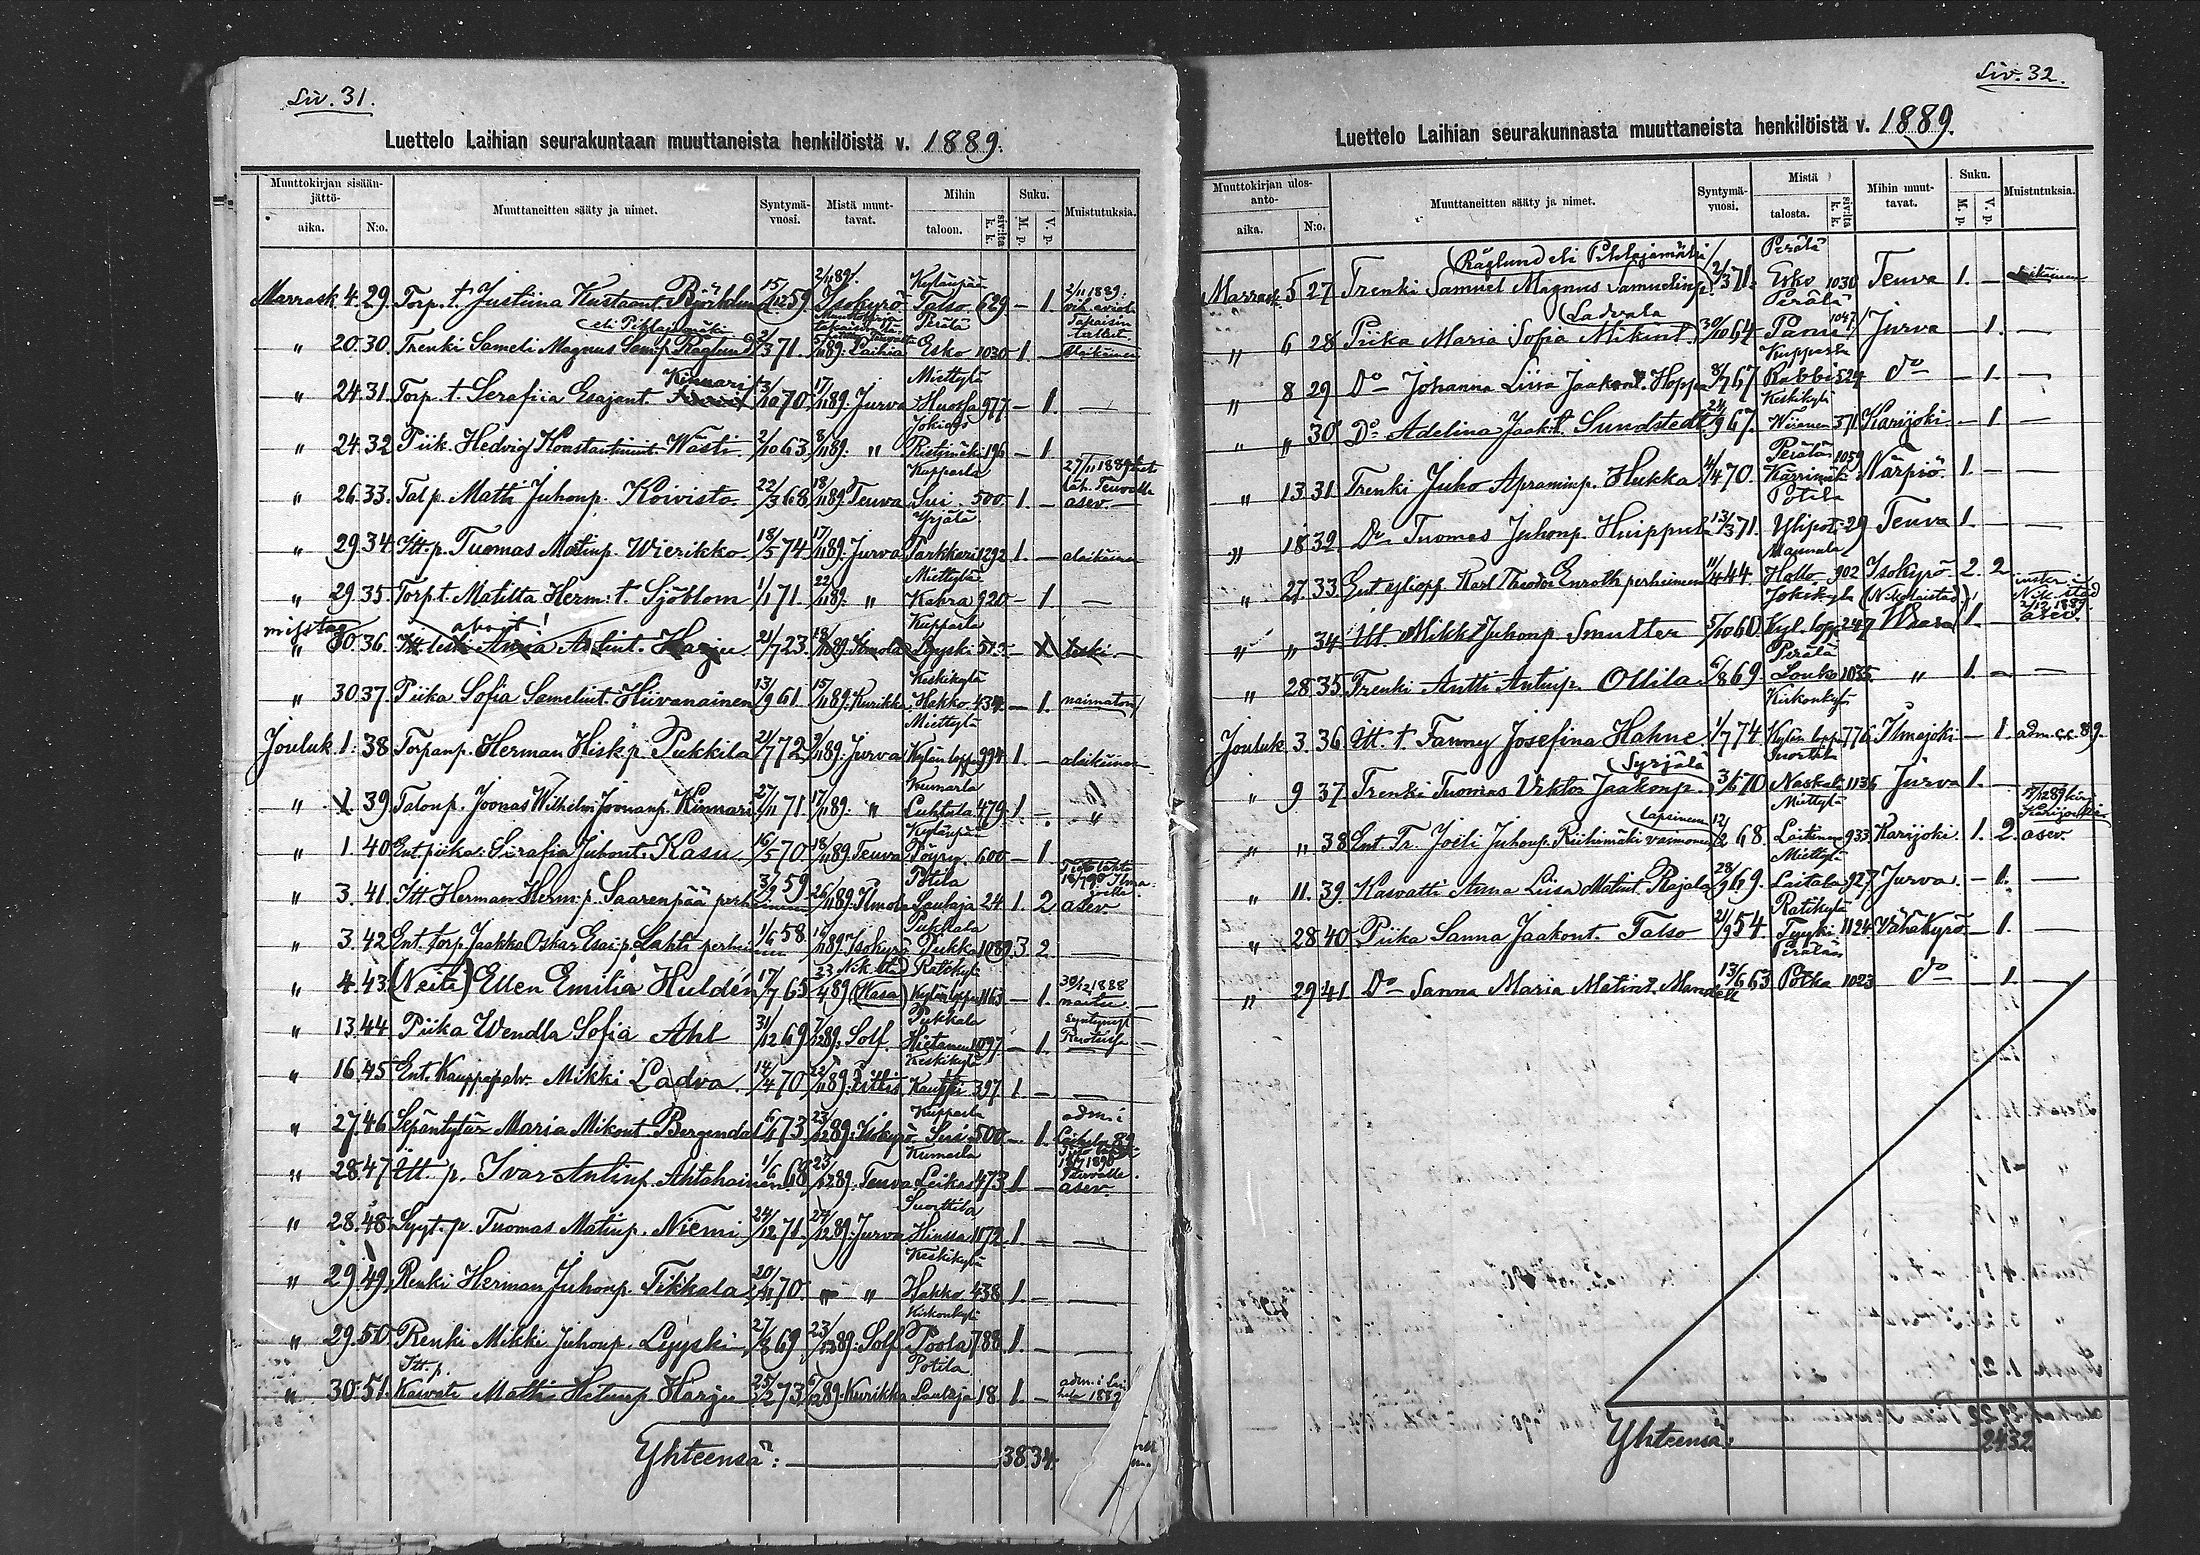 Siv. 31.
Luettelo Laihian seurakuntaan muuttaneista henkilöistä v. 1889.
Muuttokirjan sisään-jättö- aika. N:o. Muuttaneitten sääty ja nimet. Syntymä-vuosi. Mistä muut-tavat. Mihin taloon. k. k. sivilta Suku. M. p. V. p. Muistutuksia.
Marrask. 4. 29. Torp. t. Justiina Kustaant. Björklund 15/12 59 2/11 89. Isokyrö Kyläpää Talso 629 — 1.
" 20. 30. Trenki Sameli Magnus Samp. Råglund eli Pihlajamäki 2/3 71. Laihia Perälä Esko 1030 1 — alaikäinen
" 24. 31. Torp. t. Serafiia Esajant. Kinnari 3/10 70. 17/11 89. Jurva Miettylä Huossa 977 — 1. —
" 24. 32 Piik. Hedvig Konstantiinint. Wästi 2/10 63. 8/11 89. " Jokikylä Ristimäki 196 — 1
" 26. 33. Tal p. Matti Juhonp. Koivisto. 22/3 68 18/11 89. Teuva Kupparla Sui 500 1. — 27/11 1889 Teuvalle asev.
" 29. 34. Itt. p. Tuomas Matinp. Wierikko 18/5 74 17/11 89. Jurva Yrjälä Parkkari 1292 1. — alaikäinen
" 29. 35. Torp t. Matilta Herm: t. Sjöblom 1/1 71. 22/11 89. " Miettylä Kahra 920 — 1. —
misstag
" 30. 36. Itt. leski Anna Antint. Harju 21/7 23. Ilmola Kupparla Lyyski leski
" 30. 37. Piika Sofia Samelint. Hiivanainen 13/9 61. 15/11 89. Kurikka Keskikylä Hakko 434. — 1. naimaton
Jouluk. 1. 38 Torpanp. Herman Hiskp. Pukkila 21/7 72 89. Jurva Miettylä Kylän loppu 994. 1. — alaikäinen
" 1. 39. Talonp. Joonas Wilhelm Joonanp. Kinnari 27/11 71 17/11 89. " Kumarla Luhtala 479. 1. — "
" 1. 40. Ent. piika Serafia Juhont. Kasu 16/5 70 18/11 89. Teuva Kyläpää Pöyry. 600 — 1
" 3. 41. Itt. Herman Herm. p. Saarenpää perh 59 26/11 89. Ilmola Potila Laulaja 24 1. 2 asev.
" 3. 42. Ent. torp. Jaakko Oskar Esaip. Lahti 1/6 58 89. Isokyrö Pukkala Pukka 1089 3 2. —
" 4. 43. (Neiti) Ellen Emilia Huldén 17/7 65 89 (Wasa) Ratikylä Kylänloppu 1163 — 1. 30/12 1888
" 13. 44. Piika Wendla Sofia Ahl 31/12 69 7/12 89. Solf. Pukkala Hietanen 1097 — 1.
" 16. 45 Ent. Kauppapalv. Mikki Ladva. 14/4 70 22/11 89. Keskikylä Kauppi 397. 1 — —
" 27. 46 Sepäntytär Maria Mikont. Bergendal 73 23/12 89. Isokyrö Kupparla Susi 500 — 1. adm. i Laihela 89
" 28. 47. Itt. p. Ivar Antinp. Ahtahainen 1/6 68 23/12 89. Teuva Kumarla Leikas 473 1 — 1890 Teuvalle asev.
" 28. 48. Syyt. p. Tuomas Matinp. Niemi 24/12 71. 24/12 89. Jurva Suorttila Hinssa 1172. 1. — "
" 29. 49. Renki Herman Juhonp. Tikkala 20/11 70. " " Keskikylä Hakko. 438 1. — —
" 29. 50. Renki Mikki Juhonp. Lyyski 27/8 69 23/12 89. Solf Kirkonkylä Poola 788 1. — —
" 30. 51. Itt. p. Kasvatti Matti Harju 25/2 73. 6/12 89. Kurikka Potila Laulaja 18. 1. — adm. i Laihela 1889
Yhteensä: 38. 34.
Siv. 32.
Luettelo Laihian seurakunnasta muuttaneista henkilöistä v. 1889.
Muuttokirjan ulos-anto- aika. N:o. Muuttaneitten sääty ja nimet. Syntymä-vuosi. Mistä talosta. k. k. sivilta Mihin muut-tavat. Suku. M. p. V. p. Muistutuksia.
Marrask 5 27 Trenki Samuel Magnus Samuelinp. (Råglund eli Pihlajamäki) 2/3 71. Perälä Esko 1030 Teuva 1. — alaikäinen
" 6 28 Piika Maria Sofia Mikint. (Ladvala) 30/10 64 Perälä 1047 Jurva — 1. —
" 8 29 Do Johanna Liisa Jaakont. Hoppa 8/7 67 Kupparla Rabbi 524 do — 1. —
" " 30 Do Adelina Jaak. t. Sundstedt 24/9 67. Keskikylä Wiianen 371 Karijoki — 1 —
" 13 31 Trenki Juho Apraminp. Hukka 4/4 70. Perälä 1059 Närpiö 1. — —
" 18 32. Do Tuomas Juhonp. Huippula 13/3 71. Potila Ylipot. 29 Teuva 1. — —
" 27. 33 Ent. yliopp. Karl Theodor Enroth perheineen 11/4 44. Maunula Hollo 902 Isokyrö 2. 2
" " 34. Itt. Mikki Juhonp. Smulter 5/10 60 Jokikylä Kyl. lopp. 247 (Nikolaistad) Waasa 1. — Nik. stad 2/12 1889. asev.
" 28 35 Trenki Antti Antinp. Ollila. 6/8 69 Perälä Louko 1035 " 1. — —
Jouluk 3. 36 Itt. t. Fanny Josefina Hahne 1/7 74 Kirkonkylä Kylän loppu 776 Ilmajoki — 1. adm. 89.
" 9 37 Trenki Tuomas Viktor Jaakonp. (Syrjälä) 3/6 70 Suorttila Naskala 1136 Jurva 1. — —
" " 38 Ent. Tr. Joeli Juhonp. Riihimäki vaimoneen lapsineen 12/2 68. Miettylä Laitinen 933 Karijoki. 1. 2. asev.
" 11. 39. Kasvatti Anna Liisa Matint. Rajala 28/9 69. Miettylä Laitala 927 Jurva. — 1. —
" 28. 40 Piika Sanna Jaakont. Talso 21/9 54 Ratikylä Tuyki 1124 Vähäkyrö — 1. —
" 29 41 Do Sanna Maria Matint. Mandell 13/6 63 Perälä Potka 1023 do — 1. —
Yhteensä: 24 32